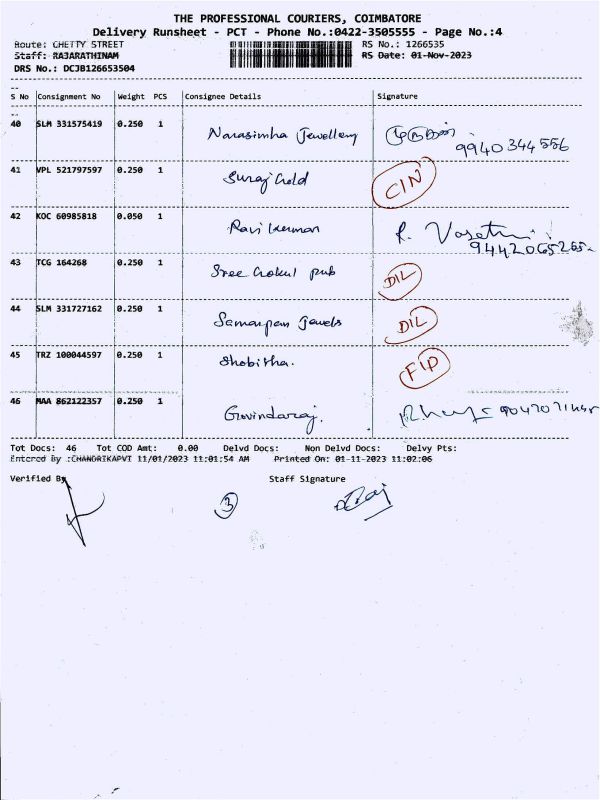 THE PROFESSIONAL COURIERS, COIMBATORE
Delivery Runsheet - PCT - Phone No.:0422-3505555 - Page No.:4
Route: CHETTY STREET RS No.: 1266535
Staff: RAJARATHINAM RS Date: 01-Nov-2023
DRS No.: DCJB126653504
S No Consignment No Weight PCS Consignee Details Signature
40 SLM 331575419 0.250 1 Narasimha Jewellery 9940344556
41 VPL 521797597 0.250 1 Suraj Gold CIN
42 KOC 60985818 0.050 1 Ravi kumar R. 9442065265
43 TCG 164268 0.250 1 Sree Gokul pub DIL
44 SLM 331727162 0.250 1 Samarpan Jewels DIL
45 TRZ 100044597 0.250 1 Shobitha. FID
46 MAA 862122357 0.250 1 Govindaraj.
Tot Docs: 46 Tot COD Amt: 0.00 Delvd Docs: Non Delvd Docs: Delvy Pts:
Entered By :CHANDRIKAPVT 11/01/2023 11:01:54 AM Printed On: 01-11-2023 11:02:06
Verified By Staff Signature
3